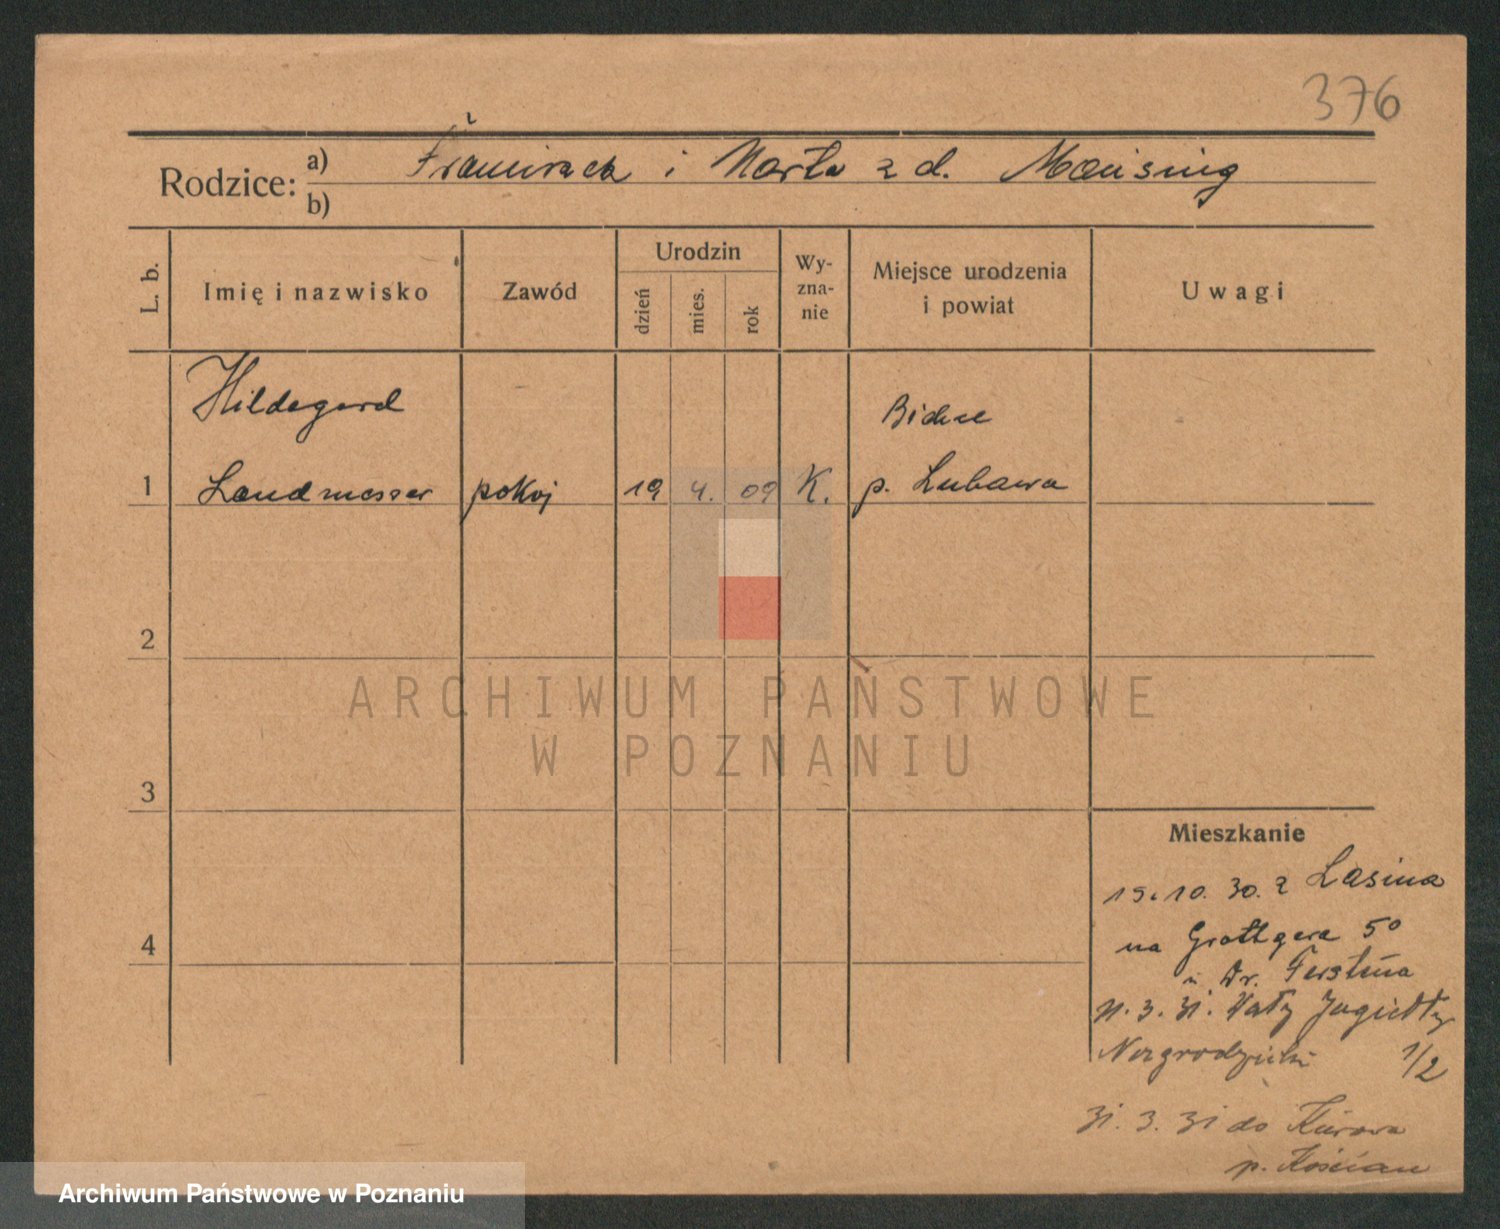 376
Rodzice: a) Franciszek i Marta z d. Maising
b)
L. b. Imię i nazwisko Zawód Urodzin dzień mies. rok Wyznanie Miejsce urodzenia i powiat Uwagi
Hildegard
1 Landmesser pokoj 19 4. 09 K. p. Lubawa
2
3
4
Mieszkanie
19.10.30. z Lasina
na Grottgera 50
u Dr.
3. 31. Wały Jagiełły
1/2
31. 3. 31 do Kurowa
p. Kościan
ARCHIWUM PAŃSTWOWE
W POZNANIU
Archiwum Państwowe w Poznaniu